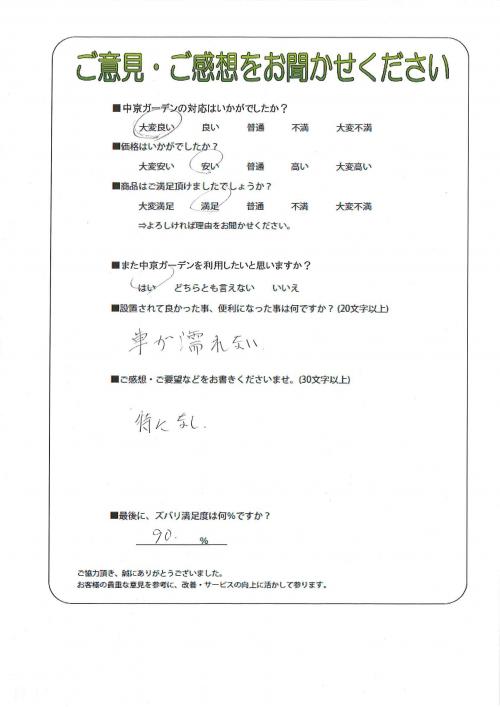 ご意見・ご感想をお聞かせください
■中京ガーデンの対応はいかがでしたか？
大変良い 良い 普通 不満 大変不満
■価格はいかがでしたか？
大変安い 安い 普通 高い 大変高い
■商品はご満足頂けましたでしょうか？
大変満足 満足 普通 不満 大変不満
⇒よろしければ理由をお聞かせください。
■また中京ガーデンを利用したいと思いますか？
はい どちらとも言えない いいえ
■設置されて良かった事、便利になった事は何ですか？(20文字以上)
車が濡れない
■ご感想・ご要望などをお書きくださいませ。(30文字以上)
特になし.
■最後に、ズバリ満足度は何％ですか？
90. ％
ご協力頂き、誠にありがとうございました。
お客様の貴重な意見を参考に、改善・サービスの向上に活かして参ります。